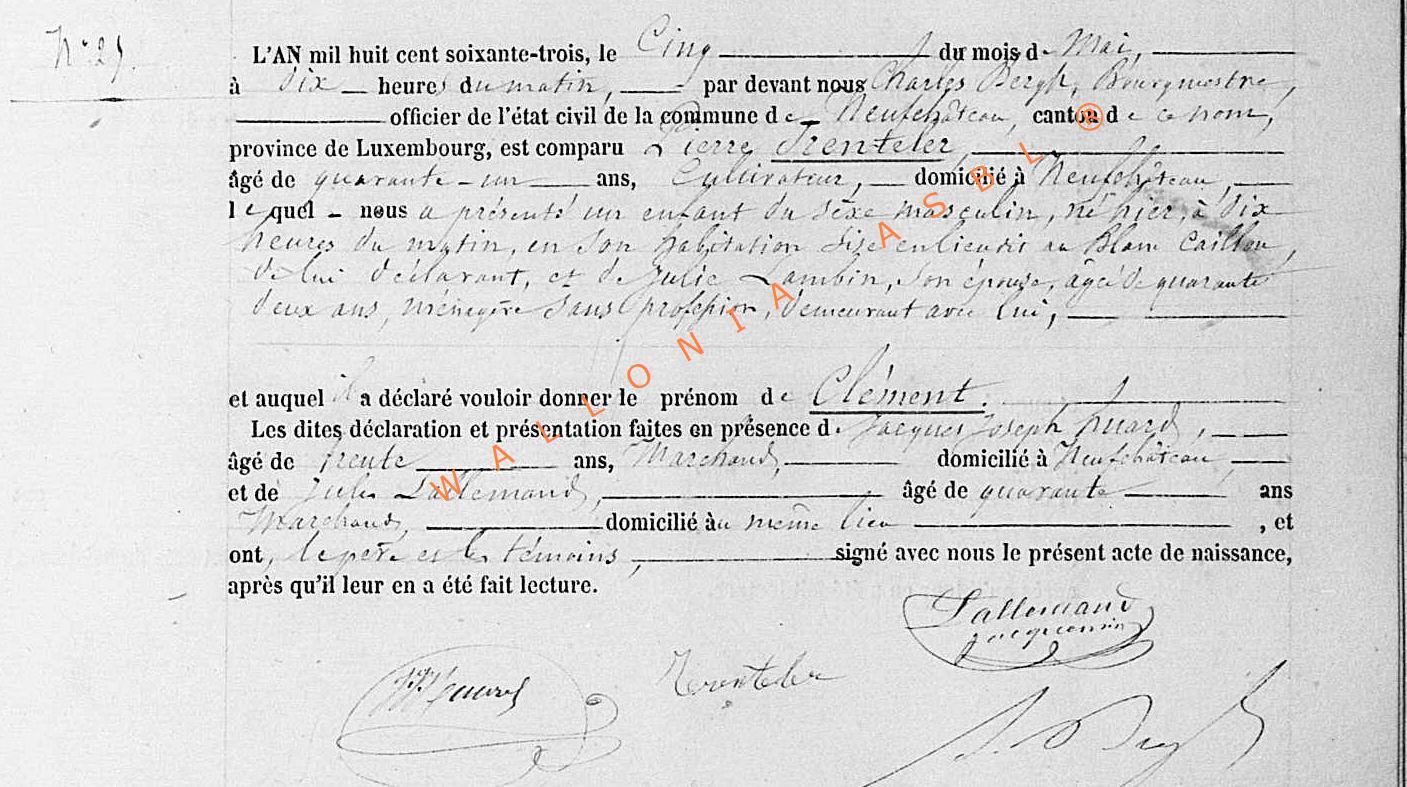 N° 25.
L'AN mil huit cent soixante-trois, le Cinq du mois de Mai,
à dix heures du matin, par devant nous Charles Bergh, Bourgmestre,
officier de l'état civil de la commune de Neufchâteau, canton de ce nom,
province de Luxembourg, est comparu Pierre Trenteler,
âgé de quarante-un ans, Cultivateur, domicilié à Neufchâteau,
lequel nous a présenté un enfant du sexe masculin, né hier, à dix
heures du matin, en son habitation sise en lieu dit au Blanc Caillou,
de lui déclarant, et de Julie Lambin, son épouse, âgée de quarante
deux ans, ménagère sans profession, demeurant avec lui,
et auquel il a déclaré vouloir donner le prénom de Clément.
Les dites déclaration et présentation faites en présence de Jacques Joseph
âgé de trente ans, Marchand, domicilié à Neufchâteau,
et de Jules Lallemand, âgé de quarante ans
Marchand, domicilié au même lieu, et
ont, le père et les témoins, signé avec nous le présent acte de naissance,
après qu'il leur en a été fait lecture.
Lallemand
Jacquemin
Trenteler
WALLONIA ASBL ®